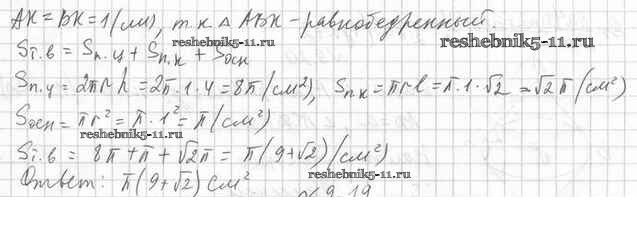 AK = BK = 1 (см), т.к △ ABK - равнобедренный.
reshebnik5-11.ru
Sт.в = Sп.ц + Sп.к + Sосн
Sп.ц = 2πrh = 2π·1·4 = 8π (см²), Sпк = πrl = π·1·√2 = √2π (см²)
Sосн = πr² = π·1² = π (см²)
reshebnik5-11.ru
Sт.в = 8π + π + √2π = π(9+√2) (см²)
Ответ: π(9+√2) см²
reshebnik5-11.ru